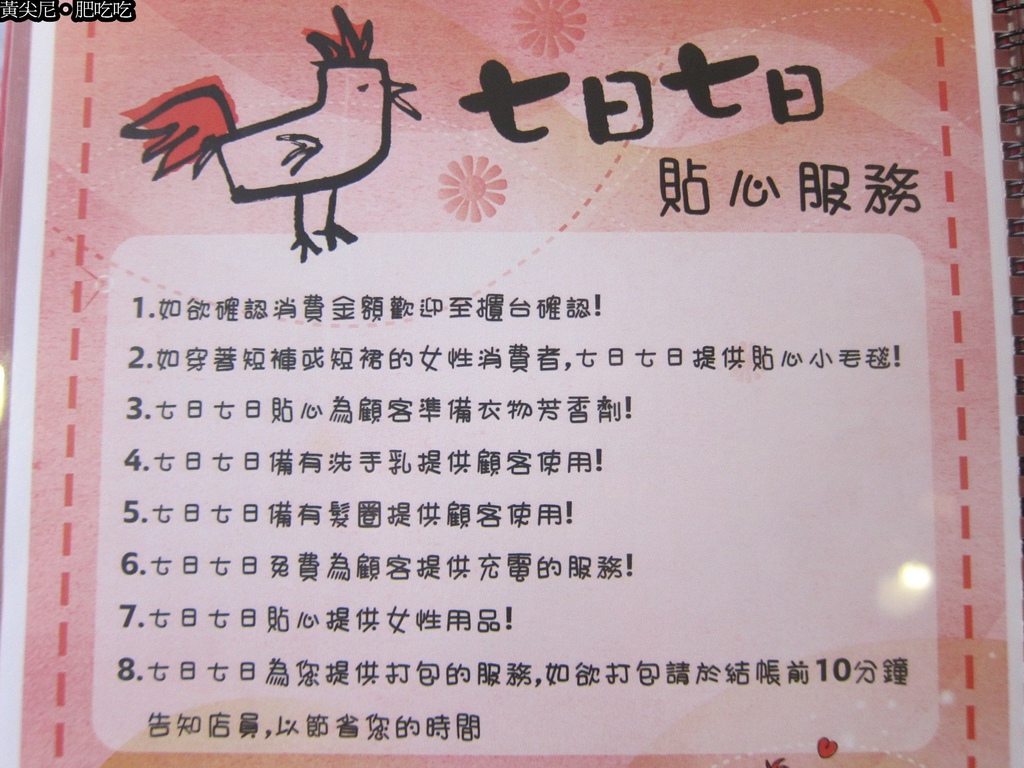 黃尖尼•肥吃吃
七日七日
貼心服務
1.如欲確認消費金額歡迎至櫃台確認!
2.如穿著短褲或短裙的女性消費者,七日七日提供貼心小毛毯!
3.七日七日貼心為顧客準備衣物芳香劑!
4.七日七日備有洗手乳提供顧客使用!
5.七日七日備有髮圈提供顧客使用!
6.七日七日免費為顧客提供充電的服務!
7.七日七日貼心提供女性用品!
8.七日七日為您提供打包的服務,如欲打包請於結帳前10分鐘
告知店員,以節省您的時間